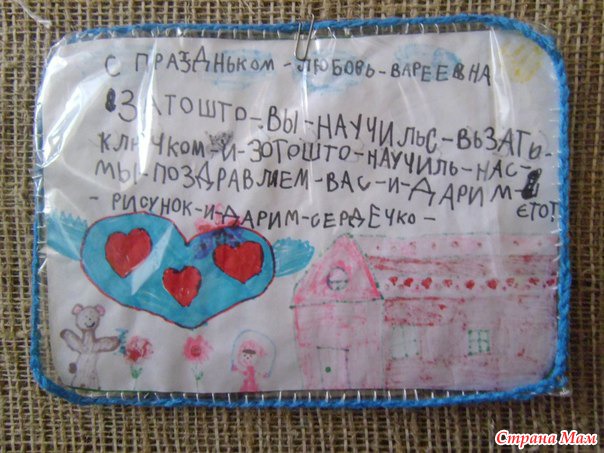 С ПРАЗДНЬКОМ - ЛЮБОВЬ - ВАРЕЕВНА
ЗАТОШТО - ВЫ - НАУЧИЛЬС - ВЬЗАТЬ -
КЛЮЧКОМ - И - ЗОТОШТО - НАУЧИЛЬ - НАС -
МЫ - ПОЗДРАВЛЯЕМ - ВАС - И - ДАРИМ -
- РИСУНОК - И - ДАРИМ - СЕРДЕЧКО - ЄТОТ
Страна Мам